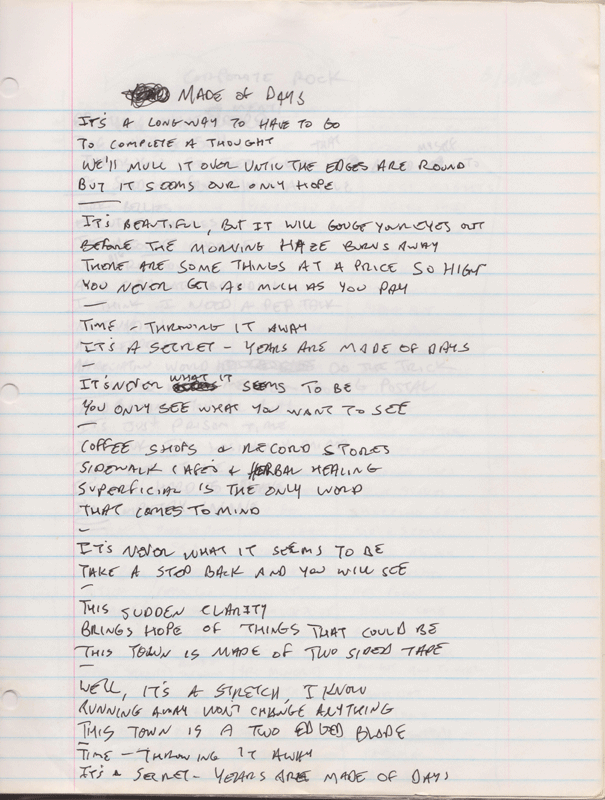 MADE OF DAYS
IT'S A LONG WAY TO HAVE TO GO
TO COMPLETE A THOUGHT
WE'LL MULL IT OVER UNTIL THE EDGES ARE ROUND
BUT IT SEEMS OUR ONLY HOPE
IT'S BEAUTIFUL, BUT IT WILL GOUGE YOUR EYES OUT
BEFORE THE MORNING HAZE BURNS AWAY
THERE ARE SOME THINGS AT A PRICE SO HIGH
YOU NEVER GET AS MUCH AS YOU PAY
TIME - THROWING IT AWAY
IT'S A SECRET - YEARS ARE MADE OF DAYS
IT'S NEVER WHAT IT SEEMS TO BE
YOU ONLY SEE WHAT YOU WANT TO SEE
COFFEE SHOPS & RECORD STORES
SIDEWALK CAFES & HERBAL HEALING
SUPERFICIAL IS THE ONLY WORD
THAT COMES TO MIND
IT'S NEVER WHAT IT SEEMS TO BE
TAKE A STEP BACK AND YOU WILL SEE
THIS SUDDEN CLARITY
BRINGS HOPE OF THINGS THAT COULD BE
THIS TOWN IS MADE OF TWO SIDED TAPE
WELL, IT'S A STRETCH, I KNOW
RUNNING AWAY WON'T CHANGE ANYTHING
THIS TOWN IS A TWO EDGED BLADE
TIME - THROWING IT AWAY
IT'S A SECRET - YEARS ARE MADE OF DAYS